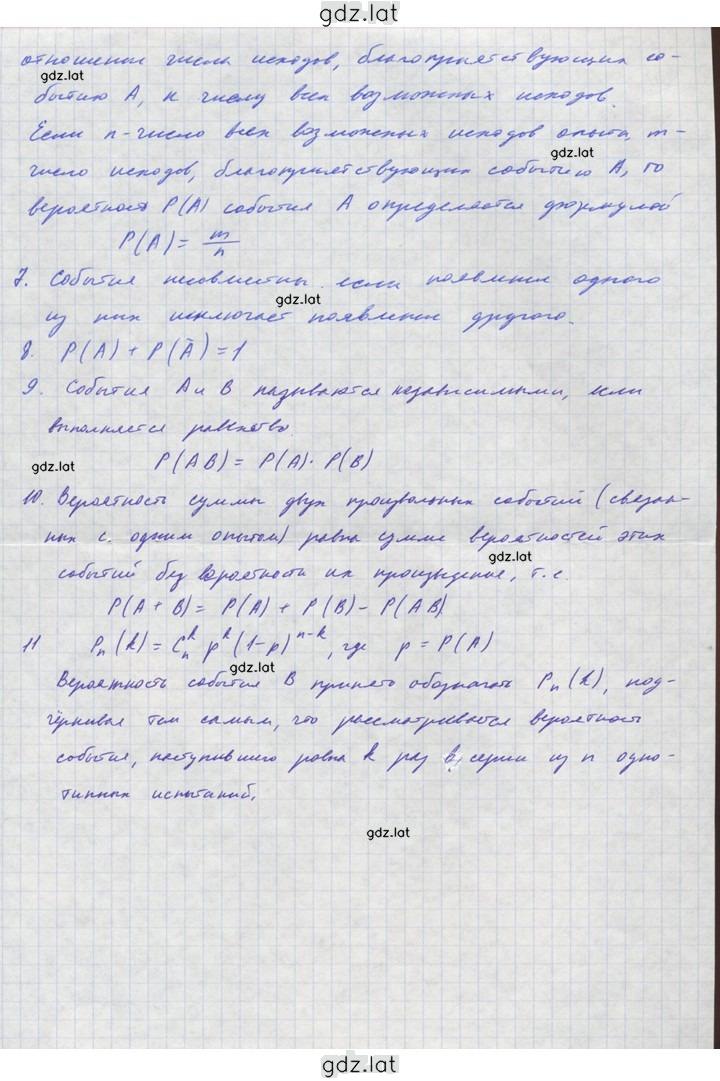 gdz.lat
отношение числа исходов, благоприятствующих со-
gdz.lat
бытию А, к числу всех возможных исходов.
Если n-число всех возможных исходов опыта, m-
gdz.lat
число исходов, благоприятствующих событию А, то
вероятность P(A) события А определяется формулой
P(A) = m/n
7. События несовместны если появление одного
gdz.lat
из них исключает появление другого.
8. P(A) + P(Ā) = 1
9. События А и В называются независимыми, если
выполняется равенство
gdz.lat
P(AB) = P(A)· P(B)
10. Вероятность суммы двух произвольных событий (связан-
ных с одним опытом) равна сумме вероятностей этих
gdz.lat
событий без вероятности их произведение, т.е.
P(A + B) = P(A) + P(B) - P(AB)
11 Pₙ(k) = Cₙᵏ pᵏ (1-p)ⁿ⁻ᵏ, где p = P(A)
gdz.lat
Вероятность события В принято обозначать Pₙ(k), под-
чёркивая тем самым, что рассматривается вероятность
события, наступившего ровна k раз в серии из n одно-
типных испытаний.
gdz.lat
gdz.lat